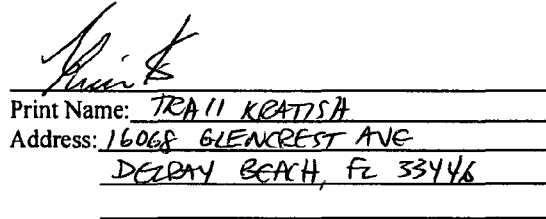 Print Name: TRAII KRATISH
Address: 16068 GLENCREST AVE
DELRAY BEACH, FL 33446